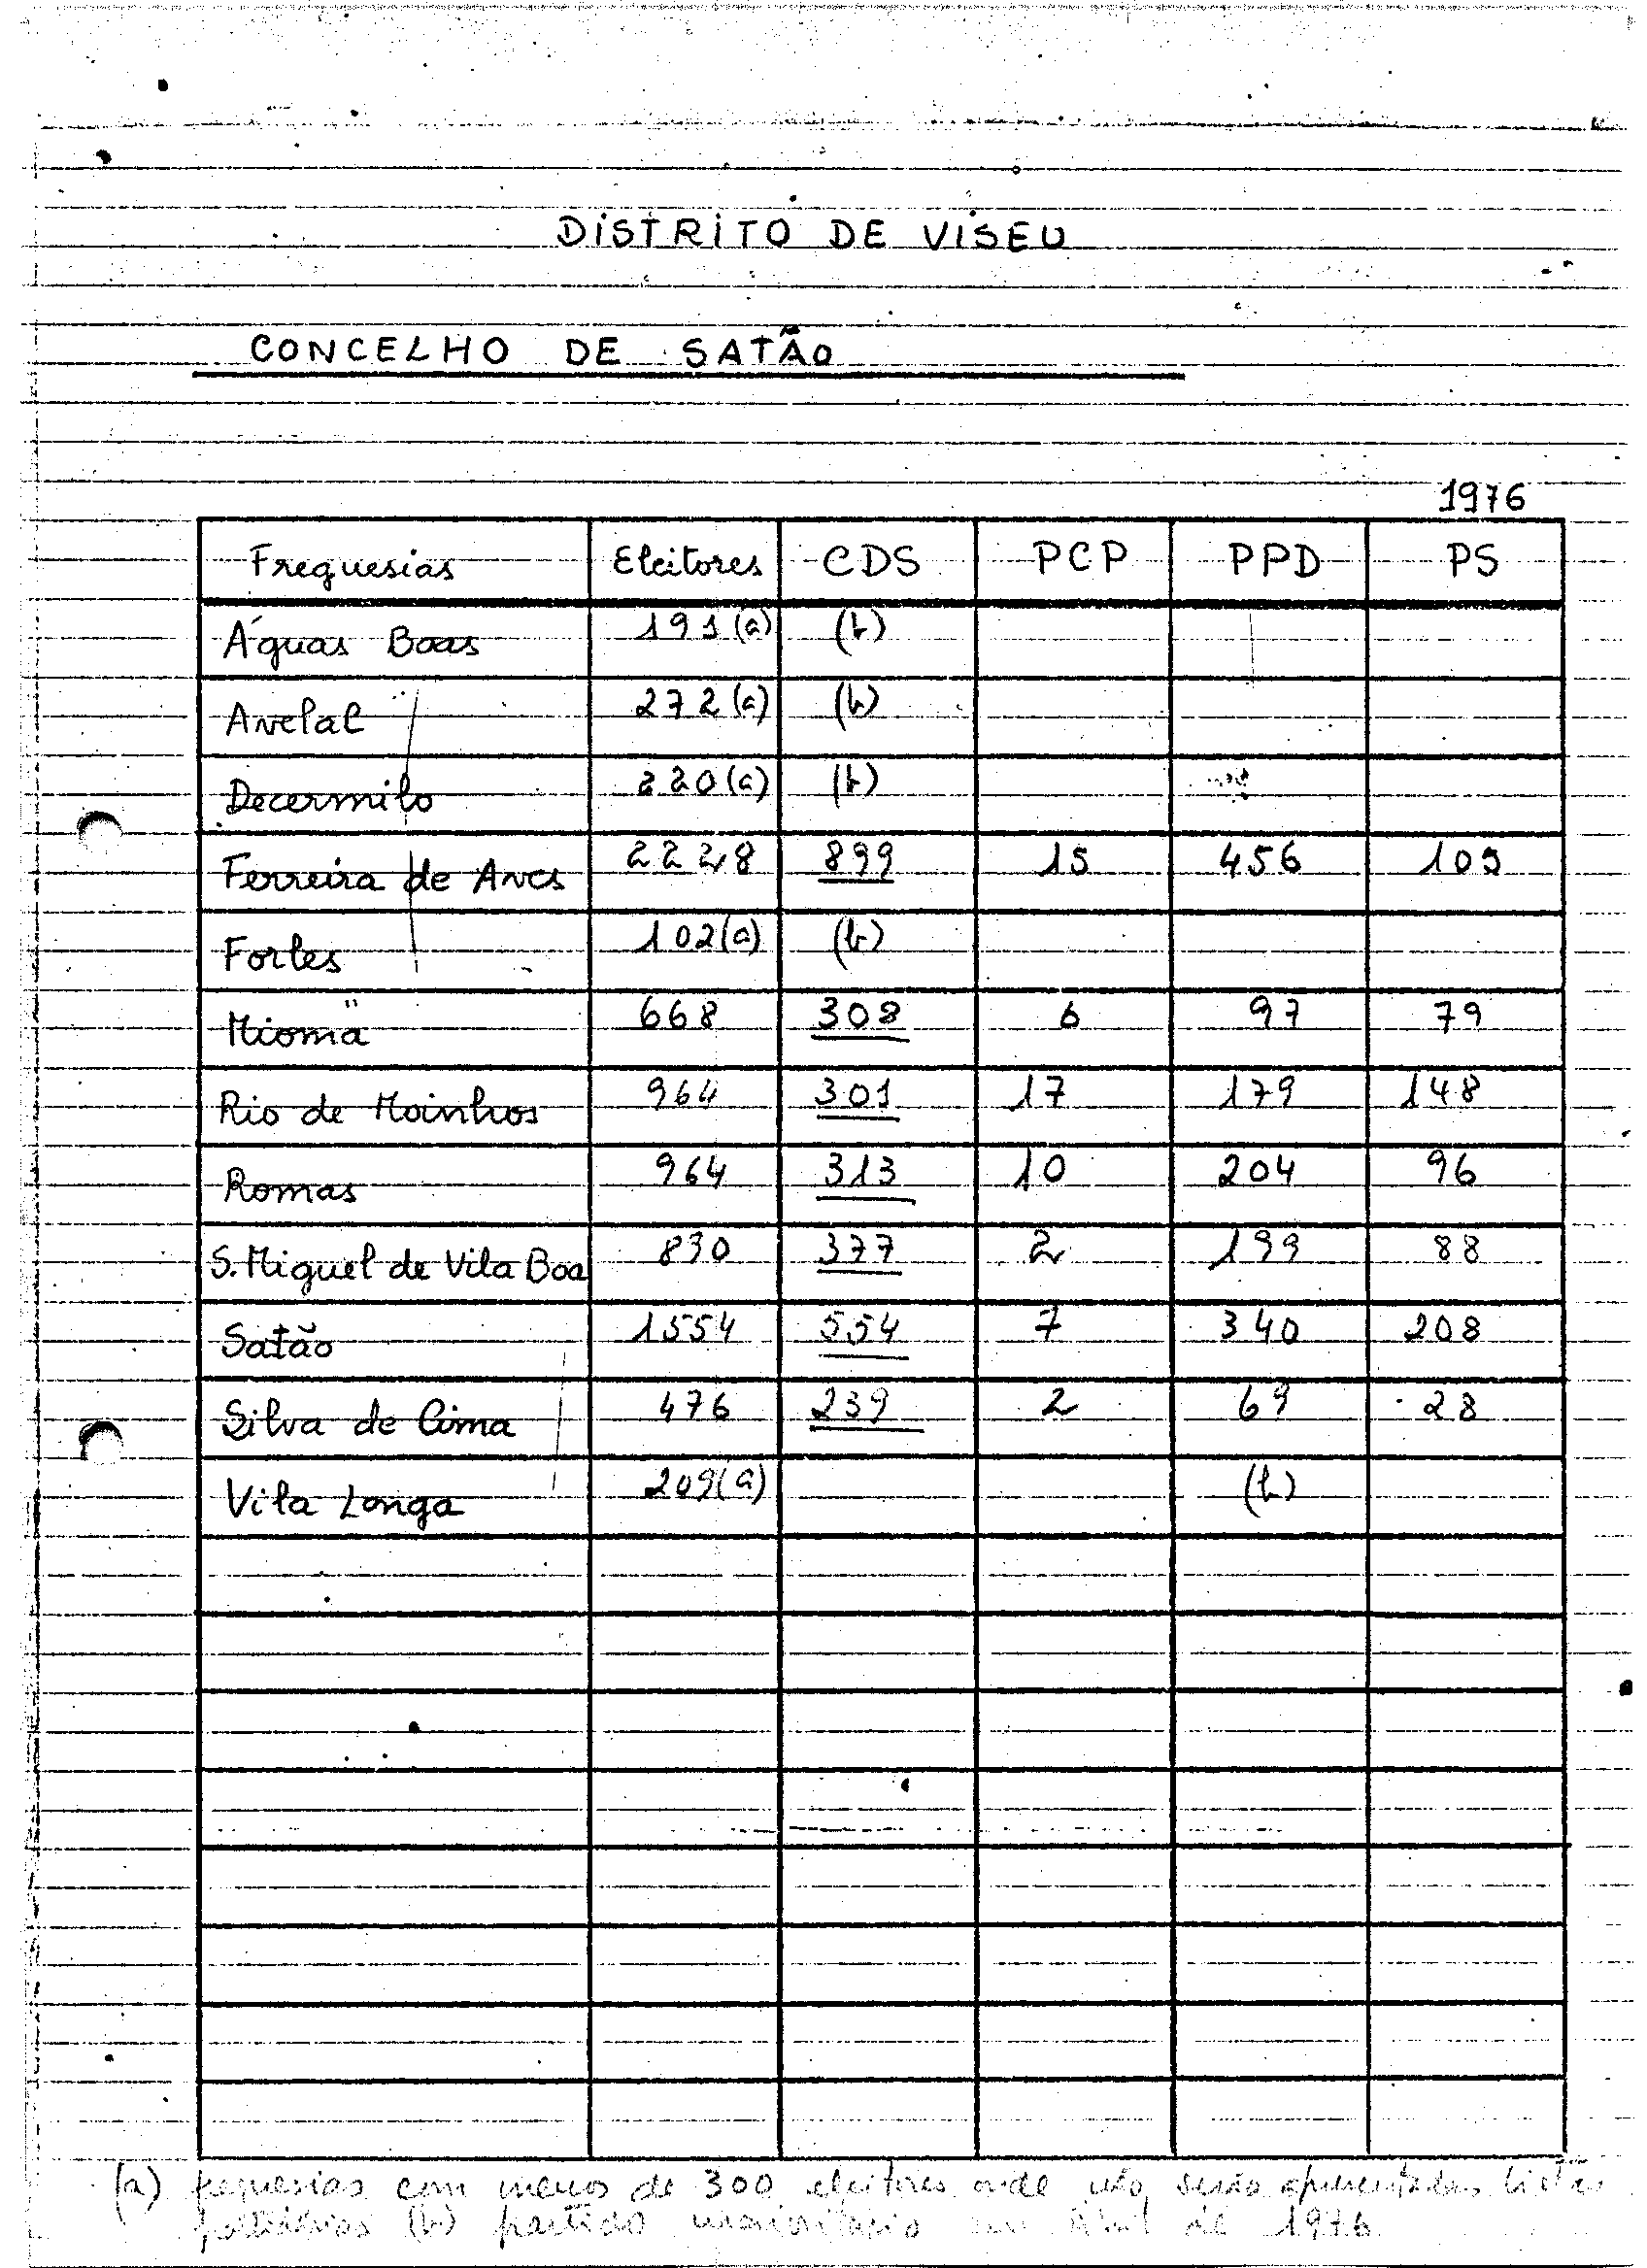 DISTRITO DE VISEU
CONCELHO DE SATÃO
1976
Freguesias Eleitores CDS PCP PPD PS
Águas Boas 191 (a) (b)
Avelal 272 (a) (b)
Decermilo 220 (a) (b)
Ferreira de Aves 2228 899 15 456 105
Forles 102 (a) (b)
Mioma 668 308 6 97 79
Rio de Moinhos 964 301 17 179 148
Romas 964 313 10 204 96
S. Miguel de Vila Boa 830 377 2 199 88
Satão 1554 554 7 340 208
Silva de Cima 476 239 2 69 28
Vila Longa 209 (a) (b)
(a) freguesias com menos de 300 eleitores onde não serão apresentadas listas
partidárias (b) partido maioritário em Abril de 1976